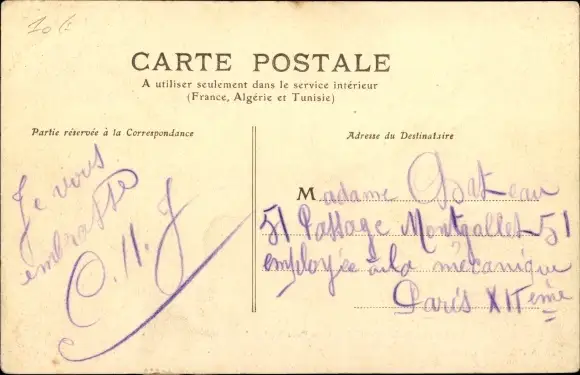 10 f
CARTE POSTALE
A utiliser seulement dans le service intérieur
(France, Algérie et Tunisie)
Partie réservée à la Correspondance
Je vous
embrasse
Adresse du Destinataire
Madame Gateau
51 Passage Montgallet 51
employée à la mécanique
Paris XIIème